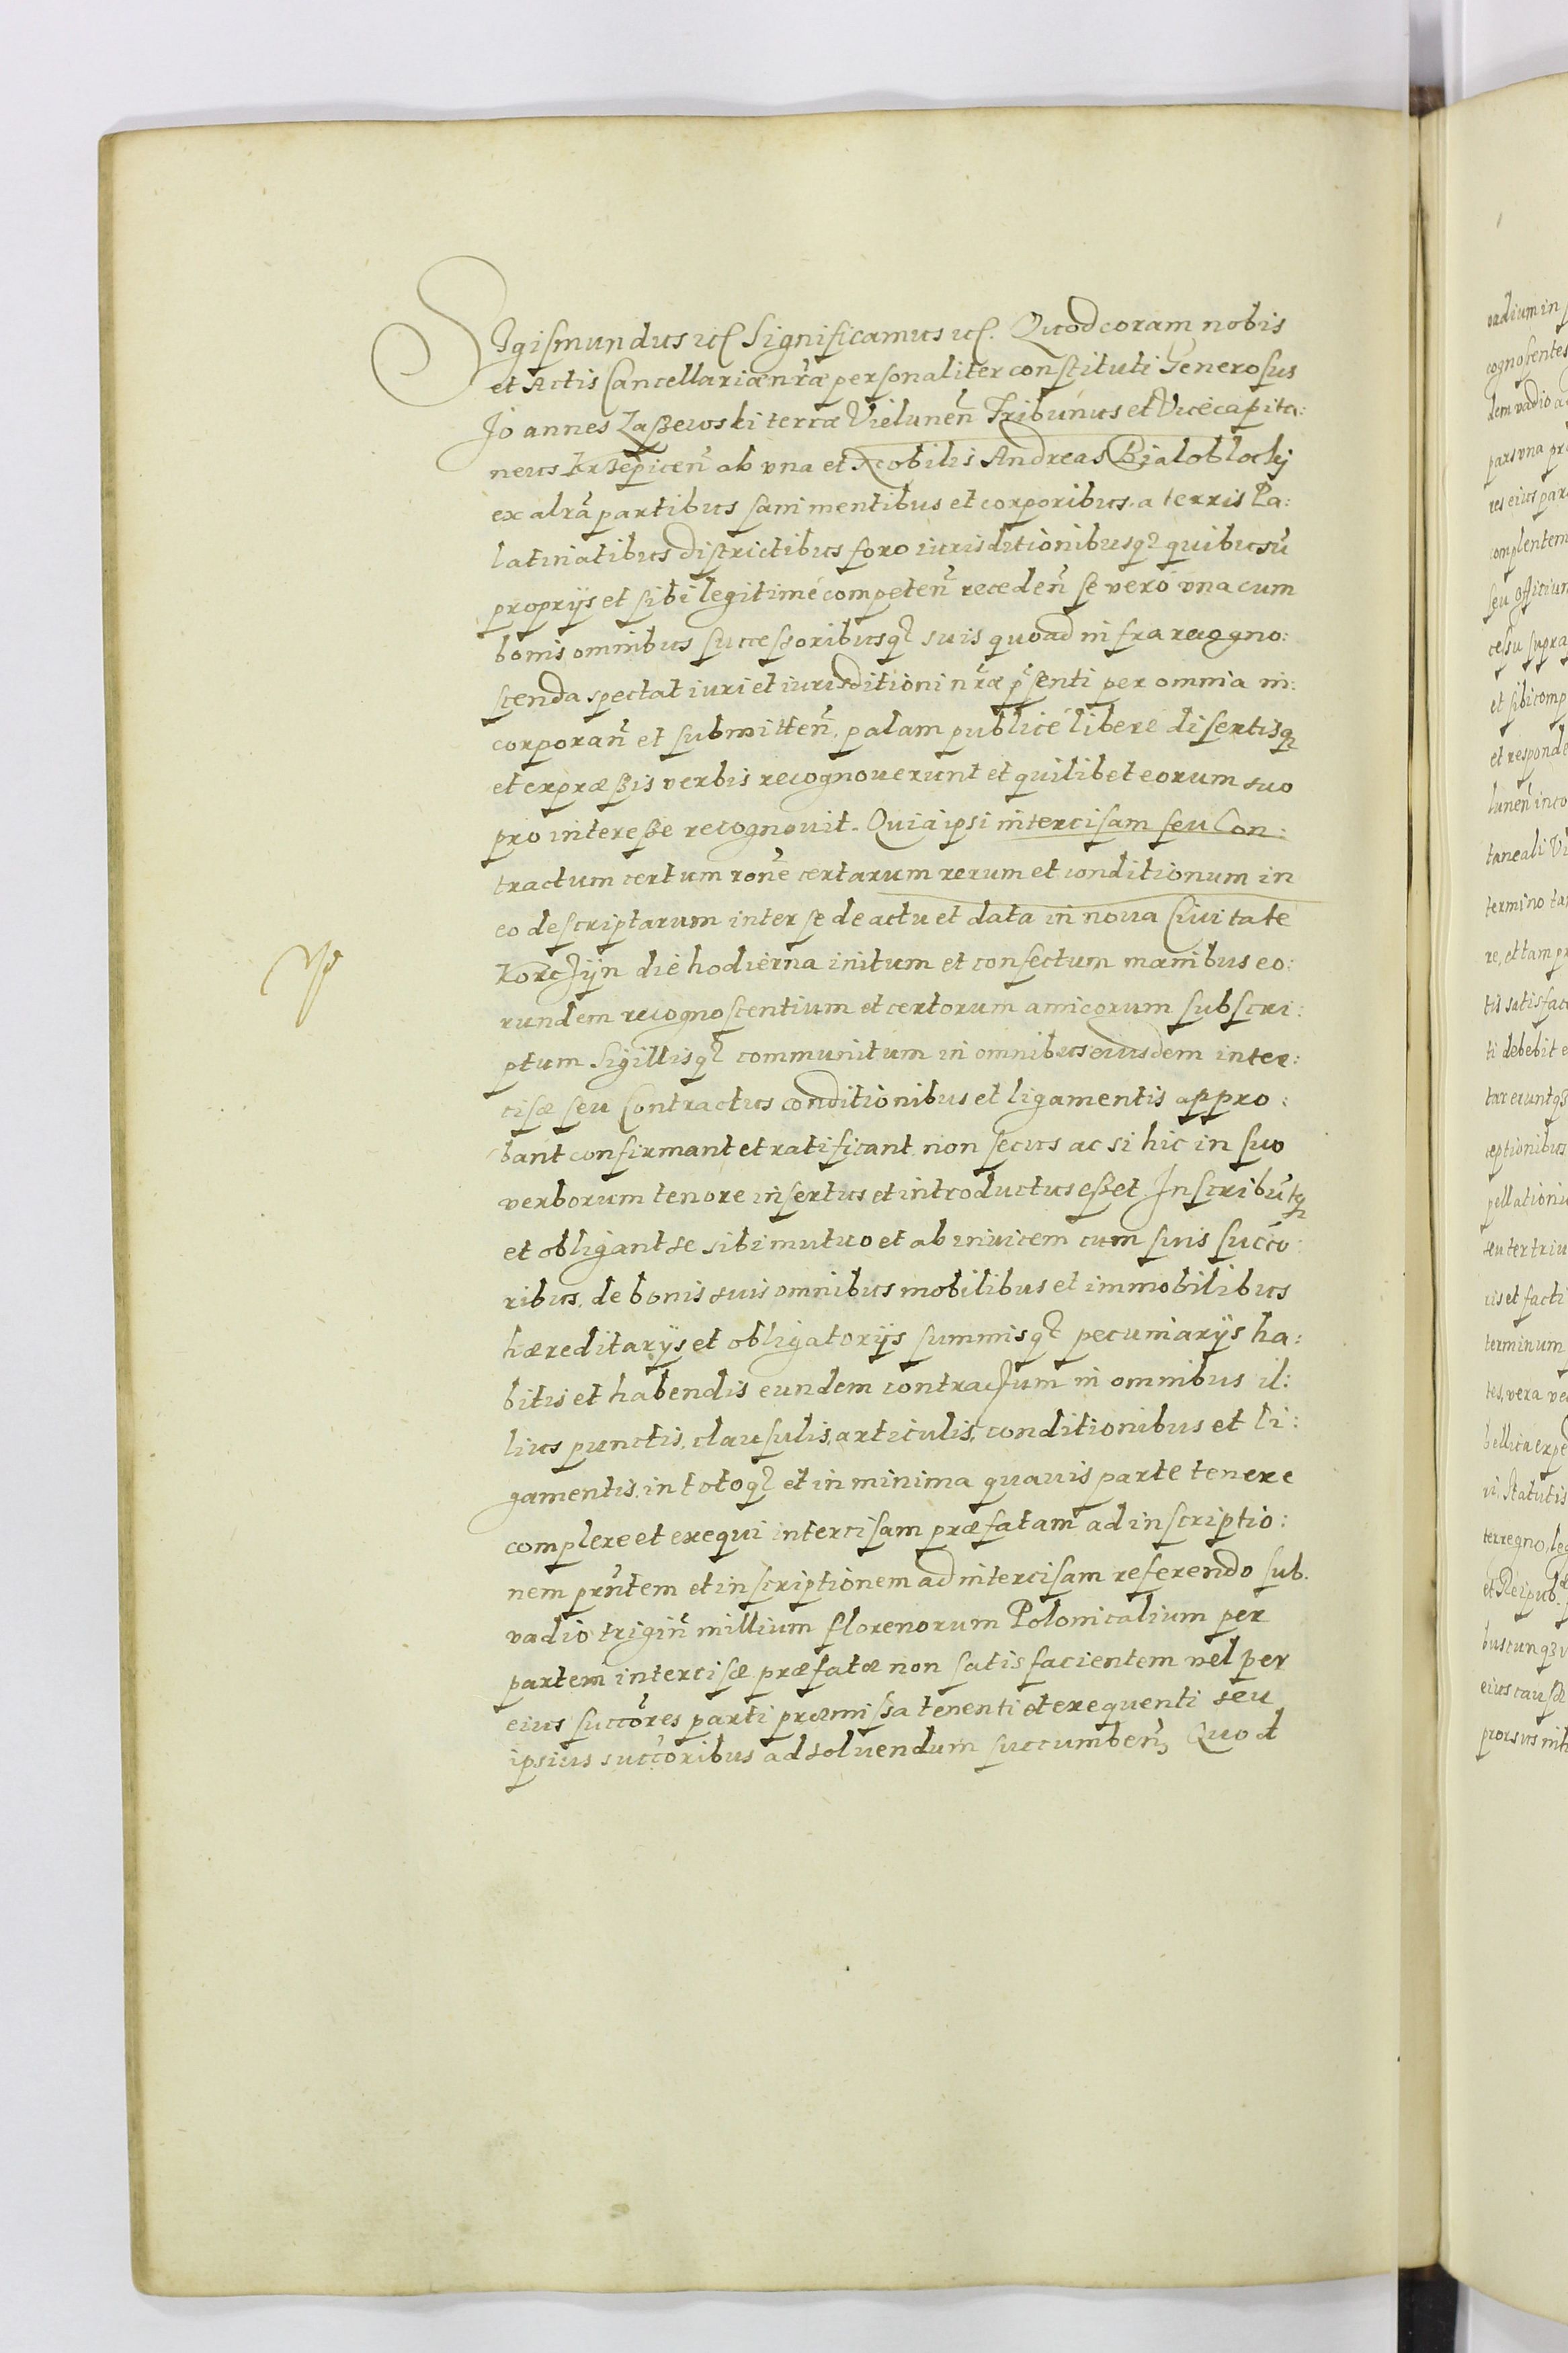 SIgismundus etc Significamus etc. Quod coram nobis
et Actis Cancellariæ nr̃æ personaliter constituti Generosus
Joannes Zaszewski terræ Vielunen̄ Tribunus et Vicecapita:
neus Krzepicen̄ ab vna et Nobilis Andreas Bialoblockj
ex alrã partibus sani mentibus et corporibus, a terris Pa:
latinatibus districtibus foro iurisditionibusq3 quibusũ
proprijs et sibi legitimé competen̄ receden̄ se vero vna cum
bonis omnibus successoribusq3 suis quoad infra recogno:
scenda spectat iuri et iurisditioni nr̃æ p̃senti per omnia in:
corporan̄ et submitten̄, palam publicé libere disertisq3
et expræssis verbis recognouerunt et quilibet eorum suo
pro interesse recognouit. Quia ipsi intercisam seu Con:
tractum certum ronẽ certarum rerum et conditionum in
eo descriptarum inter se de actu et data in noua Ciuitate
Korcżÿn die hodierna initum et confectum manibus eo:
rundem recognoscentium et certorum amicorum subscri:
ptum Sigillisq3 communitum in omnibus eiusdem inter:
cisæ seu Contractus conditionibus et ligamentis appro:
bant confirmant et ratificant, non secus ac si hic in suo
verborum tenore insertus et introductus esset. Inscribũtq3
et obligant se sibi mutuo et ab inuicem cum suis succo:
ribus, de bonis suis omnibus mobilibus et immobilibus
hæreditarijs et obligatorijs summisq3 pecuniarijs ha:
bitis et habendis eundem contractum in omnibus il:
lius punctis, clausulis, articulis, conditionibus et li:
gamentis, in totoq3 et in minima quauis parte tenere
complere et exequi intercisam præfatam ad inscriptio:
nem prñtem et inscriptionem ad intercisam referendo sub.
vadio trigin̄ millium florenorum Polonicalium per
partem intercisæ præfatæ non satisfacientem vel per
eius succõres parti præmissa tenenti et exequenti seu
ipsius succõribus ad soluendum succumben̄, Quod